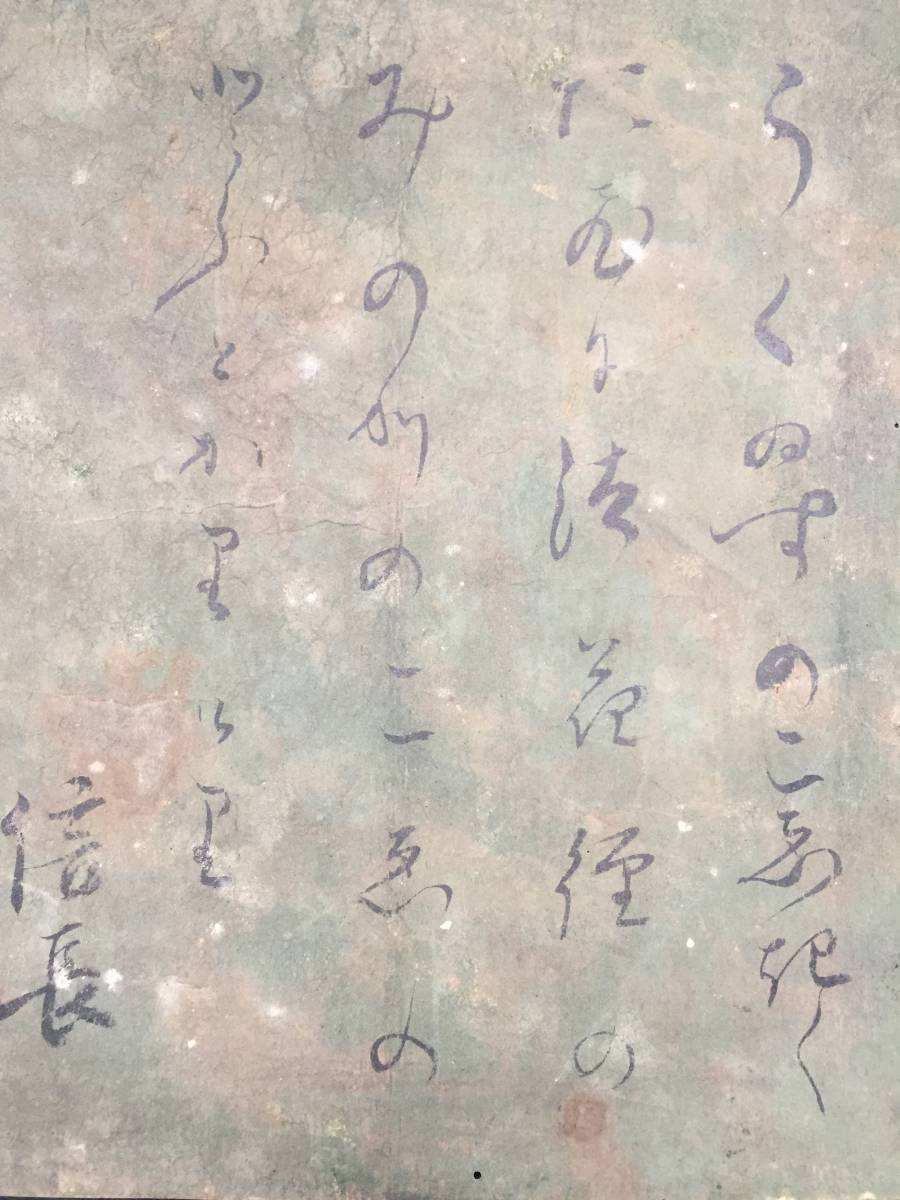 うくゐすのこゑきく
たひに法花経の
みのりのこゑの
とかりけり
信長